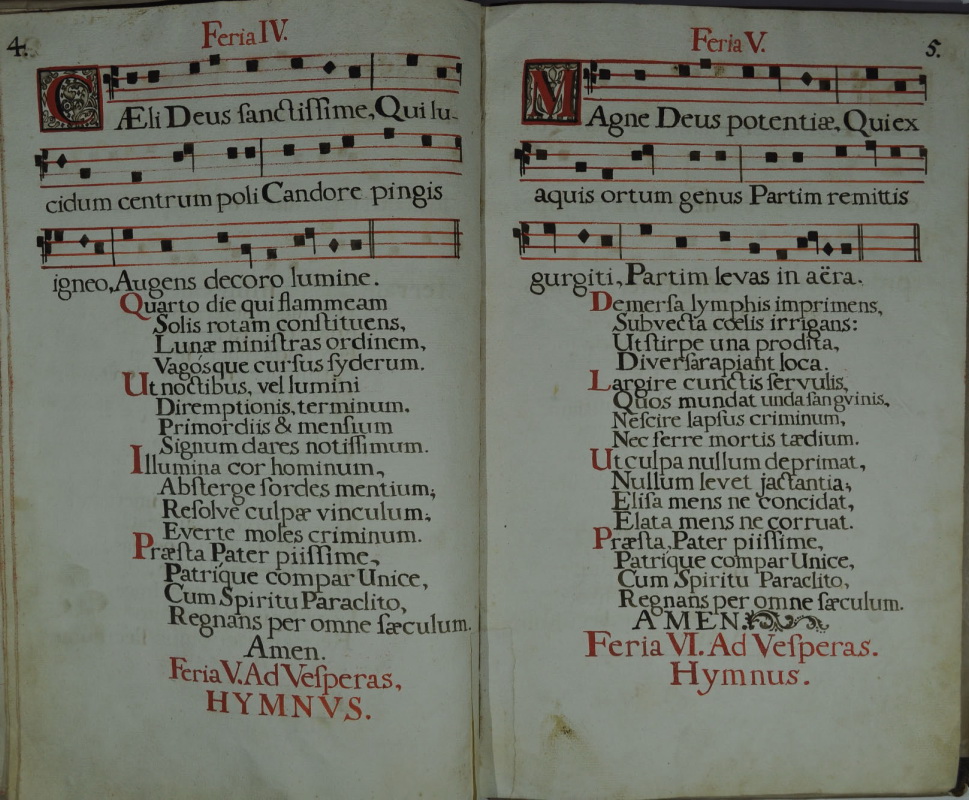 4.
Feria IV.
CÆli Deus ſanctiſſime, Qui lu-
cidum centrum poli Candore pingis
igneo, Augens decoro lumine.
Quarto die qui flammeam
Solis rotam conſtituens,
Lunæ miniſtras ordinem,
Vagósque curſus ſyderum.
Ut noctibus, vel lumini
Diremptionis, terminum,
Primordiis & menſium
Signum dares notiſſimum.
Illumina cor hominum,
Abſterge ſordes mentium;
Reſolve culpæ vinculum;
Everte moles criminum.
Præſta Pater piiſſime,
Patríque compar Unice,
Cum Spiritu Paraclito,
Regnans per omne ſæculum.
Amen.
Feria V. Ad Veſperas,
HYMNVS.
Feria V.
5.
MAgne Deus potentiæ, Qui ex
aquis ortum genus Partim remittis
gurgiti, Partim levas in aëra.
Demerſa lymphis imprimens,
Subvecta cœlis irrigans:
Ut ſtirpe una prodita,
Diverſa rapiant loca.
Largire cunctis ſervulis,
Quos mundat unda ſangvinis,
Neſcire lapſus criminum,
Nec ferre mortis tædium.
Ut culpa nullum deprimat,
Nullum levet jactantia;
Eliſa mens ne concidat,
Elata mens ne corruat.
Præſta, Pater piiſſime,
Patrique compar Unice,
Cum Spiritu Paraclito,
Regnans per omne ſæculum.
AMEN.
Feria VI. Ad Veſperas.
Hymnus.